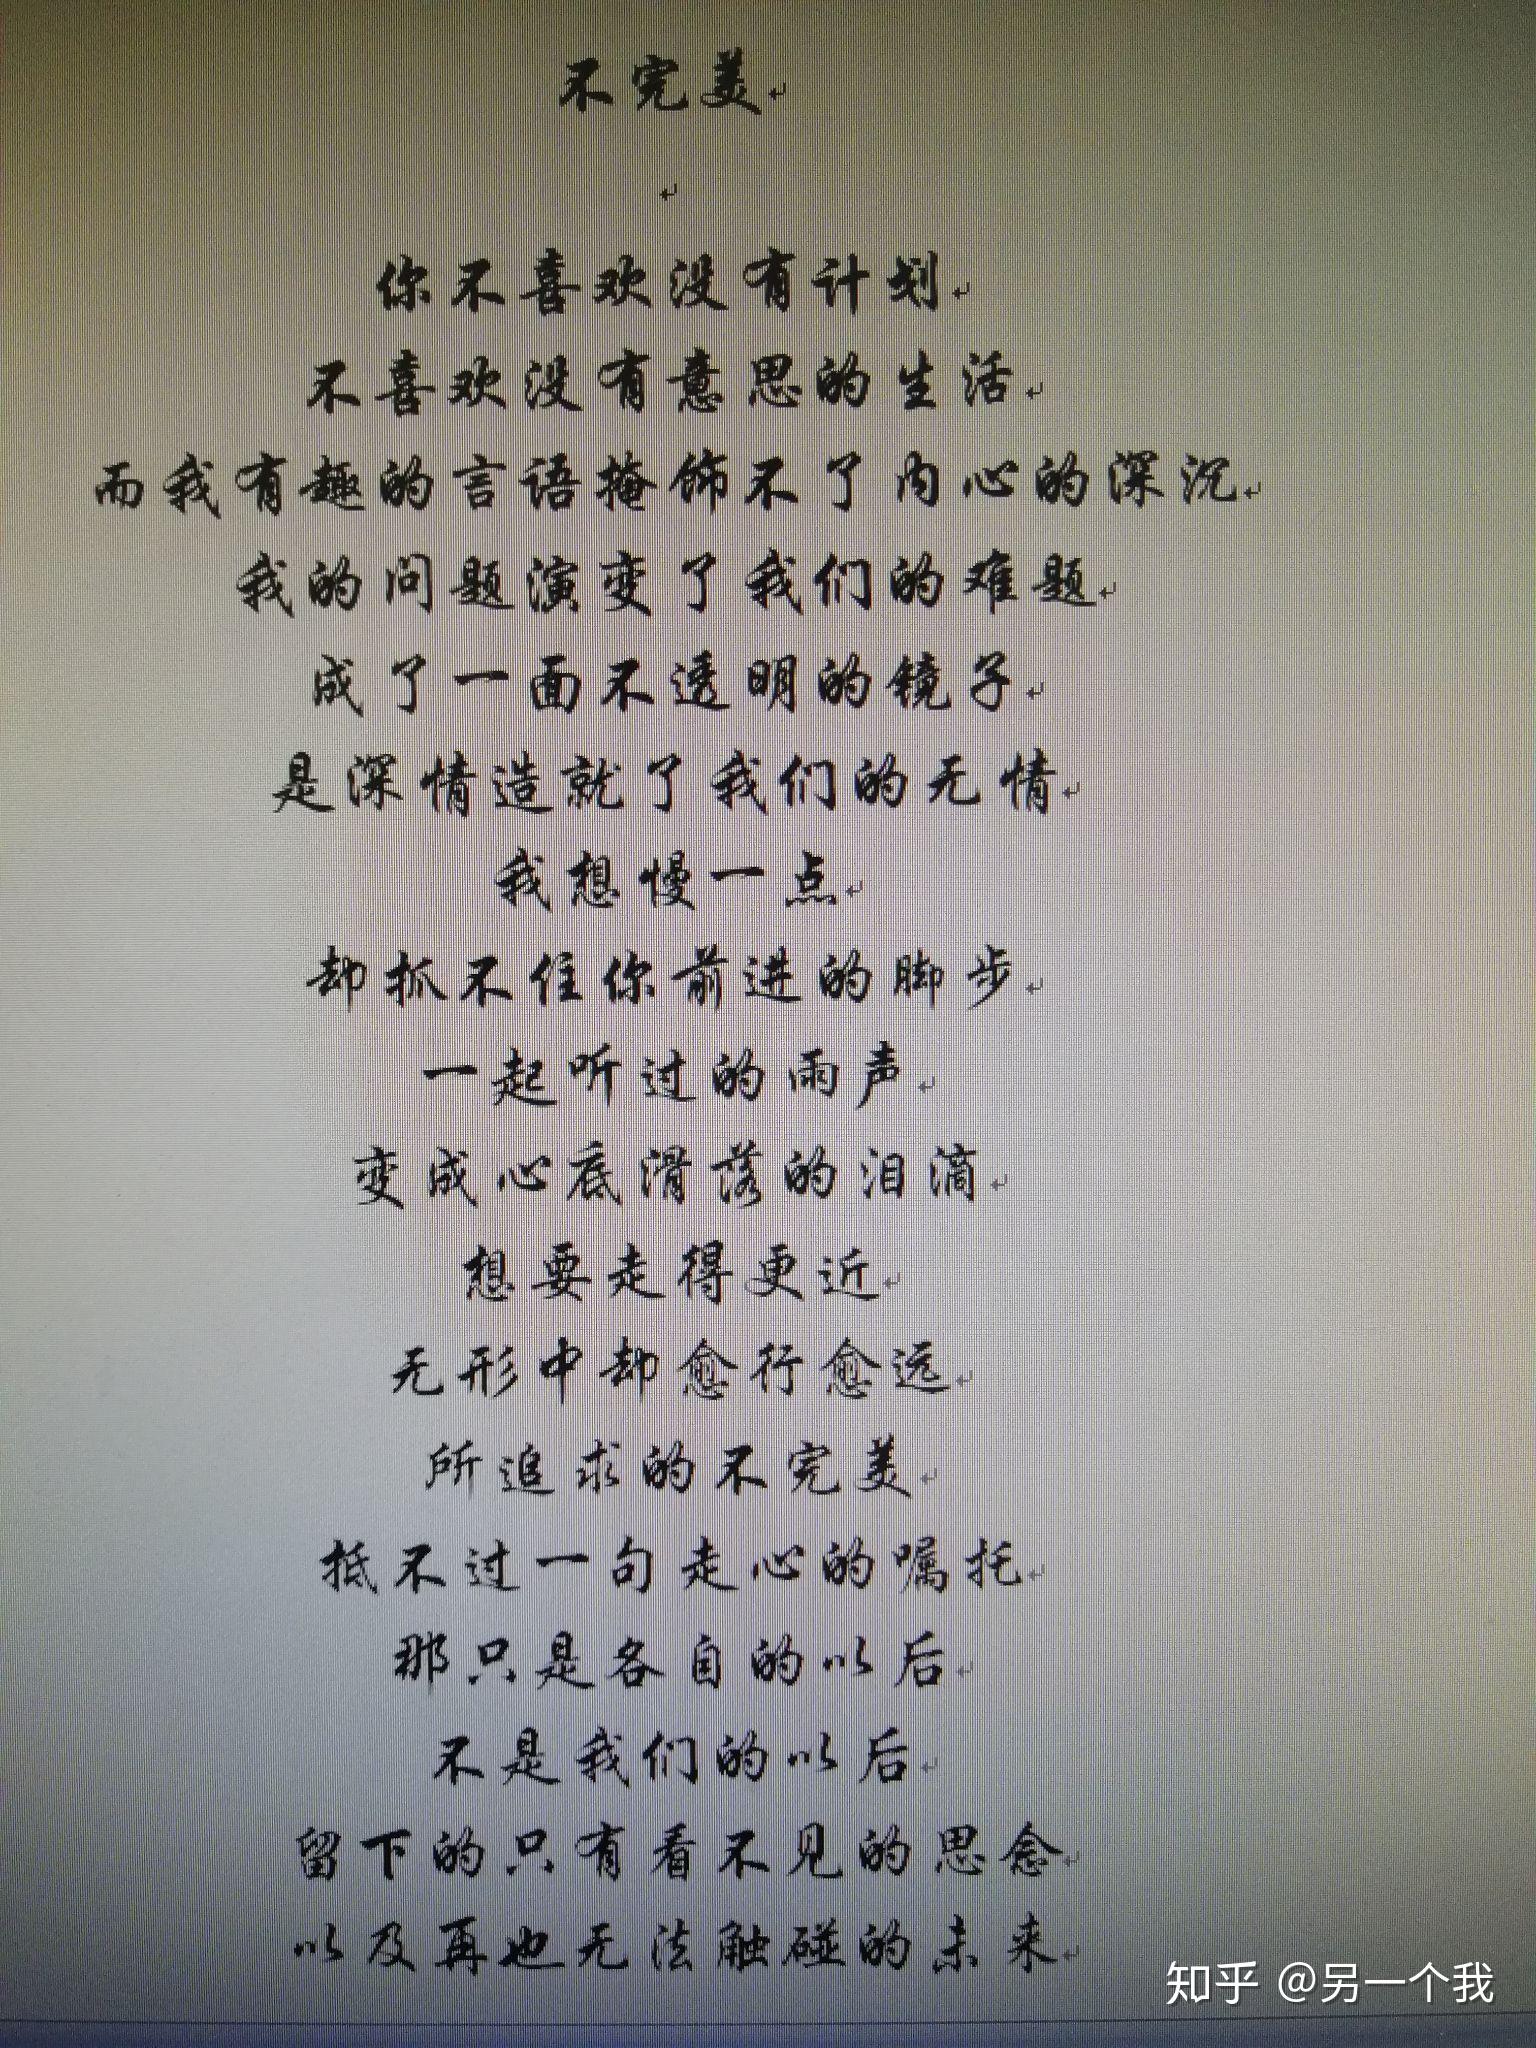 不完美
你不喜欢没有计划
不喜欢没有意思的生活
而我有趣的言语掩饰不了内心的深沉
我的问题演变了我们的难题
成了一面不透明的镜子
是深情造就了我们的无情
我想慢一点
却抓不住你前进的脚步
一起听过的雨声
变成心底滑落的泪滴
想要走得更近
无形中却愈行愈远
所追求的不完美
抵不过一句走心的嘱托
那只是各自的以后
不是我们的以后
留下的只有看不见的思念
以及再也无法触碰的未来
知乎 @另一个我